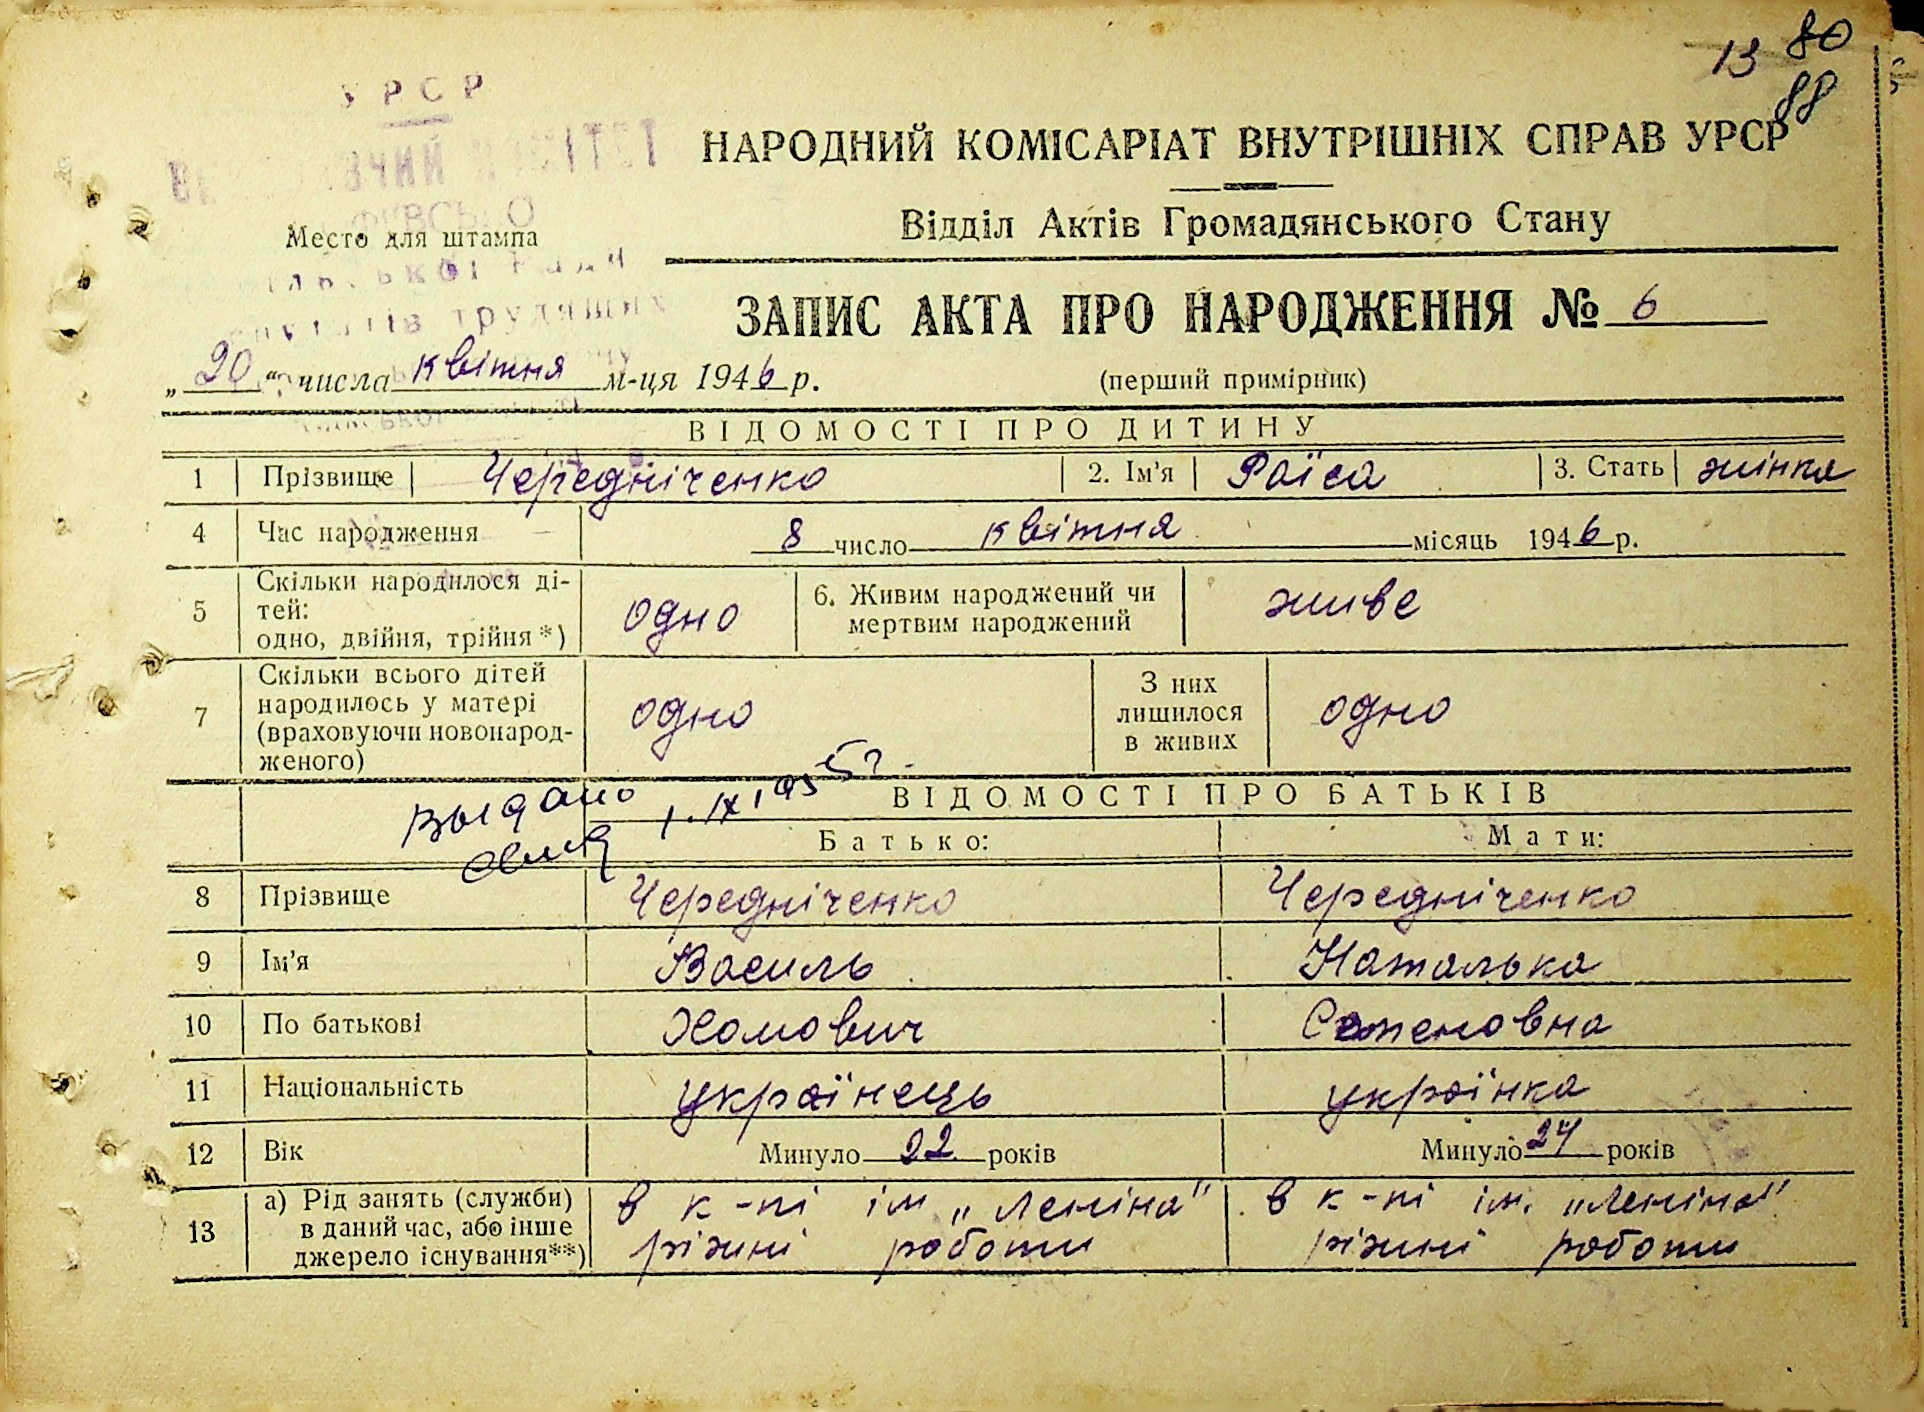 13 80
88
УРСР
НАРОДНИЙ КОМІСАРІАТ ВНУТРІШНІХ СПРАВ УРСР
Место для штампа
Відділ Актів Громадянського Стану
трудящих
ЗАПИС АКТА ПРО НАРОДЖЕННЯ № 6
„20“ числа квітня м-ця 1946 р.
(перший примірник)
ВІДОМОСТІ ПРО ДИТИНУ
1 Прізвище Чередніченко 2. Ім'я Раїса 3. Стать жінка
4 Час народження 8 число квітня місяць 1946 р.
5 Скільки народилося ді-
тей:
одно, двійня, трійня*) одно 6. Живим народжений чи
мертвим народжений живе
7 Скільки всього дітей
народилось у матері
(враховуючи новонарод-
женого) одно З них
лишилося
в живих одно
Выдано 1.IX 1955 г.
ВІДОМОСТІ ПРО БАТЬКІВ
Батько: Мати:
8 Прізвище Чередніченко Чередніченко
9 Ім'я Василь Наталька
10 По батькові Хомович Семеновна
11 Національність українець українка
12 Вік Минуло 22 років Минуло 24 років
13 а) Рід занять (служби)
в даний час, або інше
джерело існування**)
в к-пі ім „Леніна" в к-пі ім. „Леніна"
ріжні роботи ріжні роботи